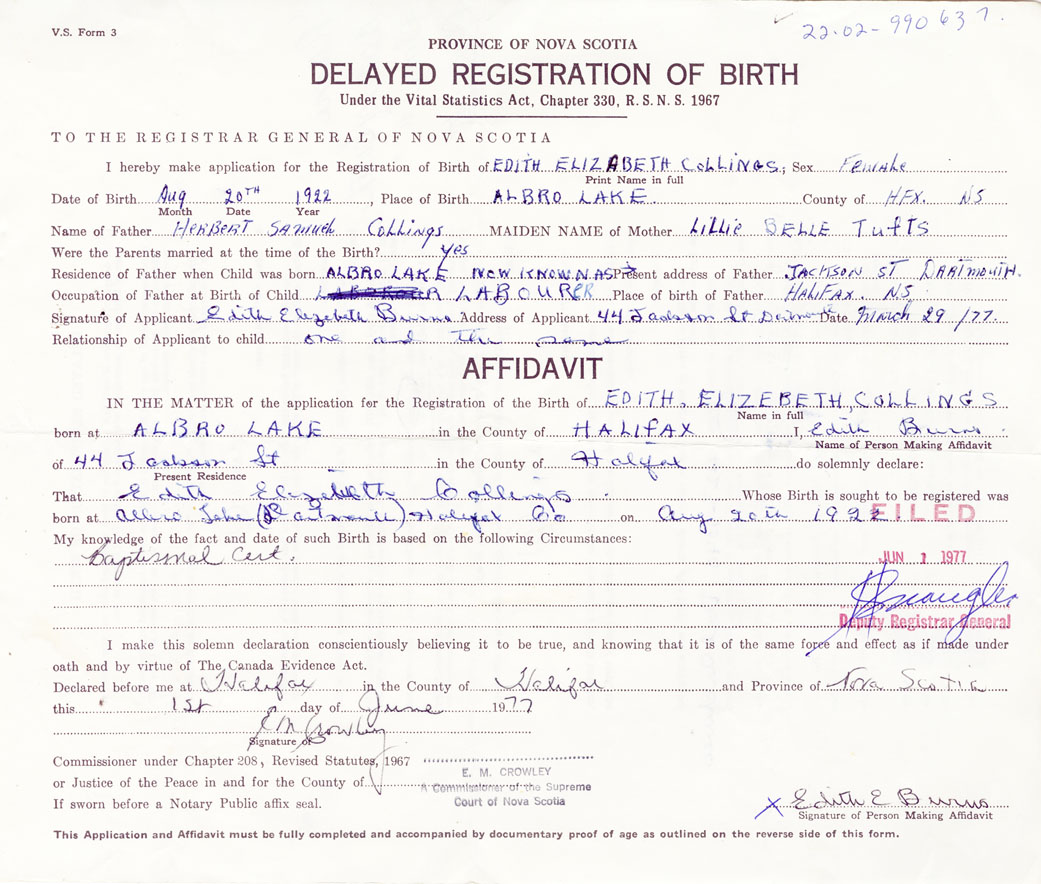 V.S. Form 3
22-02-990637.
PROVINCE OF NOVA SCOTIA
DELAYED REGISTRATION OF BIRTH
Under the Vital Statistics Act, Chapter 330, R. S. N. S. 1967
TO THE REGISTRAR GENERAL OF NOVA SCOTIA
I hereby make application for the Registration of Birth of EDITH ELIZABETH COLLINGS; Sex Female
Print Name in full
Date of Birth Aug 20TH 1922, Place of Birth ALBRO LAKE County of HFX. NS
Month Date Year
Name of Father HERBERT SAMUEL COLLINGS MAIDEN NAME of Mother LILLIE BELLE TUFTS
Were the Parents married at the time of the Birth? yes
Residence of Father when Child was born ALBRO LAKE NOW KNOWN AS Present address of Father JACKSON ST DARTMOUTH.
Occupation of Father at Birth of Child LABOURER Place of birth of Father HALIFAX. NS
Signature of Applicant Edith Elizabeth Burns Address of Applicant 44 Jackson St Date March 29/77.
Relationship of Applicant to child one and the same
AFFIDAVIT
IN THE MATTER of the application for the Registration of the Birth of EDITH, ELIZEBETH, COLLINGS
Name in full
born at ALBRO LAKE in the County of HALIFAX I, Edith Burns
Name of Person Making Affidavit
of 44 Jackson St in the County of Halifax do solemnly declare:
Present Residence
That Edith Elizabeth Collings Whose Birth is sought to be registered was
born at Albro Lake (Dartmouth) Halifax Co on Aug 20th 1922 FILED
My knowledge of the fact and date of such Birth is based on the following Circumstances:
Baptismal Cert.
JUN 1 1977
Deputy Registrar General
I make this solemn declaration conscientiously believing it to be true, and knowing that it is of the same force and effect as if made under
oath and by virtue of The Canada Evidence Act.
Declared before me at Halifax in the County of Halifax and Province of Nova Scotia
this 1st day of June 1977
E M Crowley
Signature of
Commissioner under Chapter 208, Revised Statutes, 1967
E. M. CROWLEY
or Justice of the Peace in and for the County of
A Commissioner of the Supreme
Court of Nova Scotia
If sworn before a Notary Public affix seal.
X Edith E Burns
Signature of Person Making Affidavit
This Application and Affidavit must be fully completed and accompanied by documentary proof of age as outlined on the reverse side of this form.